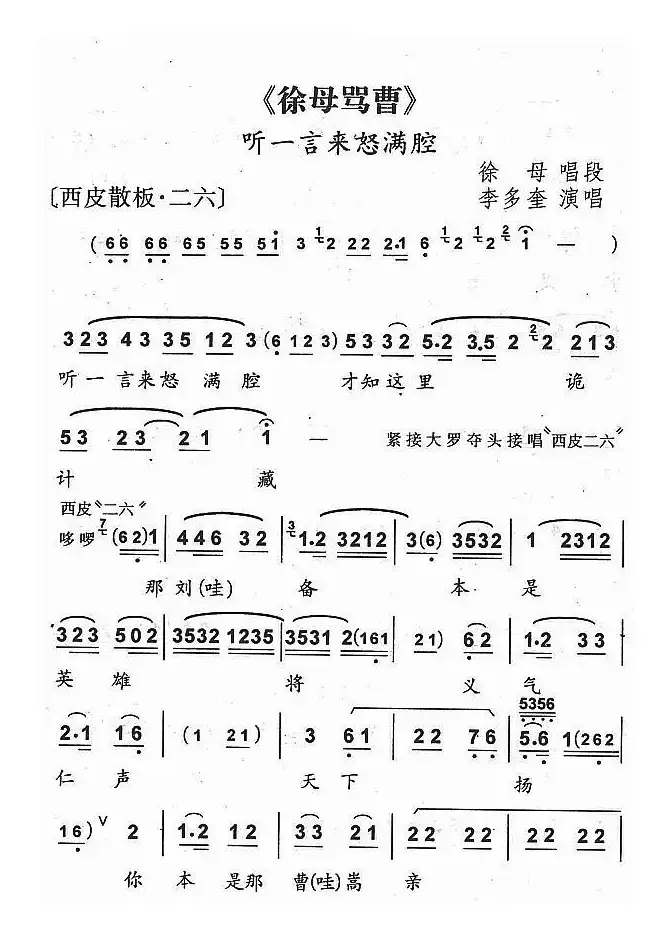 《徐母骂曹》
听一言来怒满腔
徐 母 唱段
〔西皮散板·二六〕
李多奎 演唱
( 66 66 65 55 51 3 12 22 2·1 6 12 12 21 — )
3 23 43 35 12 3 (6 123) 53 32 5·2 3·5 2 22 213
听 一 言 来 怒 满 腔 才 知 这 里 诡
53 23 21 1 — 紧接大罗夺头接唱“西皮二六”
计 藏
西皮“二六”
哆啰 7 (62)1 | 446 32 | 3 1·2 3212 | 3(6) 3532 | 1 2312 |
那刘(哇) 备 本 是
323 502 | 3532 1235 | 3531 2(161 | 21) 62 | 1·2 33 |
英 雄 将 义 气
5356
2·1 16 | (1 21) | 3 61 | 22 76 | 5·6 1(262 |
仁 声 天 下 扬
16) ∨ 2 | 1·2 12 | 33 21 | 22 22 | 22 22 |
你 本 是 那 曹(哇)嵩 亲